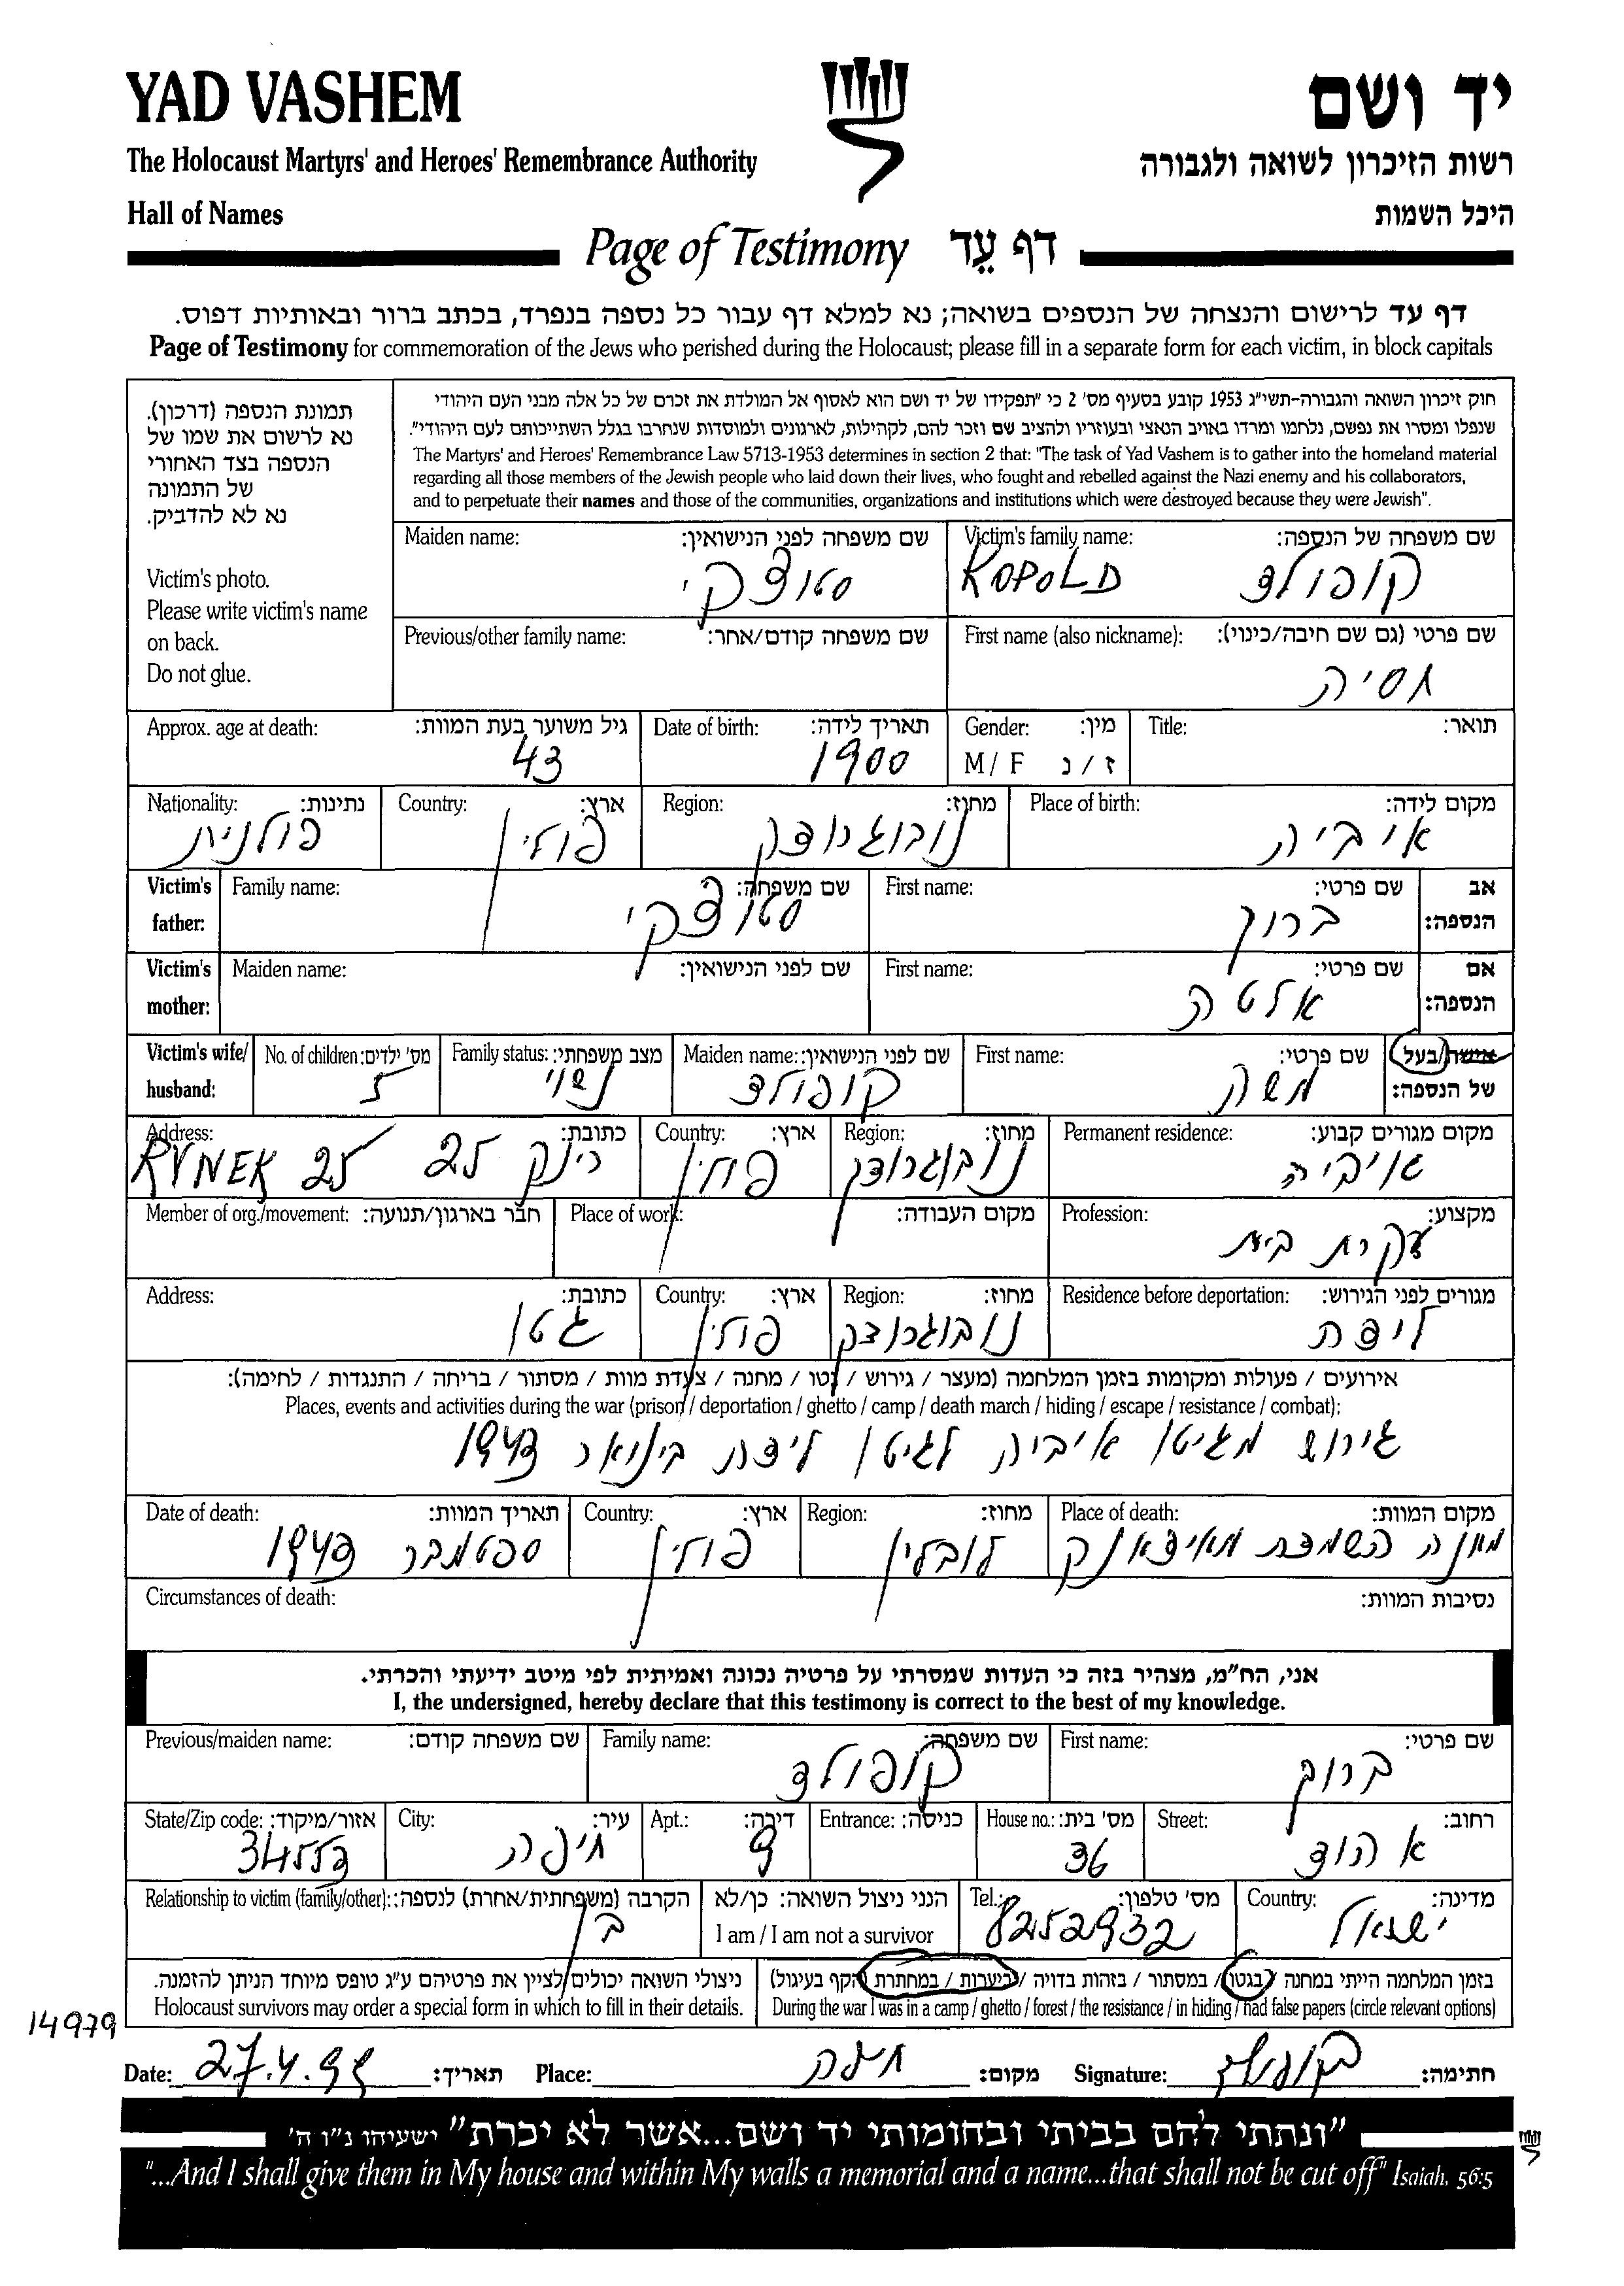 YAD VASHEM
יד ושם
The Holocaust Martyrs' and Heroes' Remembrance Authority
רשות הזיכרון לשואה ולגבורה
Hall of Names
היכל השמות
Page of Testimony דף עֵד
דף עד לרישום והנצחה של הנספים בשואה; נא למלא דף עבור כל נספה בנפרד, בכתב ברור ובאותיות דפוס.
Page of Testimony for commemoration of the Jews who perished during the Holocaust; please fill in a separate form for each victim, in block capitals
תמונת הנספה (דרכון).
נא לרשום את שמו של
הנספה בצד האחורי
של התמונה
נא לא להדביק.
Victim's photo.
Please write victim's name
on back.
Do not glue.
חוק זיכרון השואה והגבורה-תשי"ג 1953 קובע בסעיף מס' 2 כי "תפקידו של יד ושם הוא לאסוף אל המולדת את זכרם של כל אלה מבני העם היהודי
שנפלו ומסרו את נפשם, נלחמו ומרדו באויב הנאצי ובעוזריו ולהציב שם וזכר להם, לקהילות, לארגונים ולמוסדות שנחרבו בגלל השתייכותם לעם היהודי".
The Martyrs' and Heroes' Remembrance Law 5713-1953 determines in section 2 that: "The task of Yad Vashem is to gather into the homeland material
regarding all those members of the Jewish people who laid down their lives, who fought and rebelled against the Nazi enemy and his collaborators,
and to perpetuate their names and those of the communities, organizations and institutions which were destroyed because they were Jewish".
Victim's family name: שם משפחה של הנספה:
KOPOLD קופולד
Maiden name: שם משפחה לפני הנישואין:
סטוצקי
First name (also nickname): שם פרטי (גם שם חיבה/כינוי):
חסיה
Previous/other family name: שם משפחה קודם/אחר:
Title: תואר:
Gender: מין:
M / F ז / נ
Date of birth: תאריך לידה:
1900
Approx. age at death: גיל משוער בעת המוות:
43
Place of birth: מקום לידה:
איביה
Region: מחוז:
נובוגרודק
Country: ארץ:
פולין
Nationality: נתינות:
פולנית
Victim's father: אב הנספה:
First name: שם פרטי:
ברוך
Family name: שם משפחה:
סטוצקי
Victim's mother: אם הנספה:
First name: שם פרטי:
אלטה
Maiden name: שם לפני הנישואין:
Victim's wife/ husband: אישה/בעל של הנספה:
First name: שם פרטי:
משה
Maiden name: שם לפני הנישואין:
קופולד
Family status: מצב משפחתי:
נשוי
No. of children: מס' ילדים:
5
Permanent residence: מקום מגורים קבוע:
איביה
Region: מחוז:
נובוגרודק
Country: ארץ:
פולין
Address: כתובת:
RYNEK 25 רינק 25
Profession: מקצוע:
עקרת בית
Place of work: מקום העבודה:
Member of org./movement: חבר בארגון/תנועה:
Residence before deportation: מגורים לפני הגירוש:
לידה
Region: מחוז:
נובוגרודק
Country: ארץ:
פולין
Address: כתובת:
גטו
אירועים / פעולות ומקומות בזמן המלחמה (מעצר / גירוש / גטו / מחנה / צעדת מוות / מסתור / בריחה / התנגדות / לחימה):
Places, events and activities during the war (prison / deportation / ghetto / camp / death march / hiding / escape / resistance / combat):
גירוש מגיטו איביה לגיטו לידה בינואר 1943
Place of death: מקום המוות:
מחנה השמדה מאידאנק
Region: מחוז:
לובלין
Country: ארץ:
פולין
Date of death: תאריך המוות:
ספטמבר 1943
Circumstances of death: נסיבות המוות:
אני, הח"מ, מצהיר בזה כי העדות שמסרתי על פרטיה נכונה ואמיתית לפי מיטב ידיעתי והכרתי.
I, the undersigned, hereby declare that this testimony is correct to the best of my knowledge.
First name: שם פרטי:
ברוך
Family name: שם משפחה:
קופולד
Previous/maiden name: שם משפחה קודם:
Street: רחוב:
אהוד
House no.: מס' בית:
36
Entrance: כניסה:
Apt.: דירה:
9
City: עיר:
חיפה
State/Zip code: אזור/מיקוד:
34553
Country: מדינה:
ישראל
Tel.: מס' טלפון:
8252932
הנני ניצול השואה: כן/לא
I am / I am not a survivor
Relationship to victim (family/other): הקרבה (משפחתית/אחרת) לנספה:
בן
בזמן המלחמה הייתי במחנה / בגטו / במסתור / בזהות בדויה / ביערות / במחתרת (הקף בעיגול)
During the war I was in a camp / ghetto / forest / the resistance / in hiding / had false papers (circle relevant options)
ניצולי השואה יכולים לציין את פרטיהם ע"ג טופס מיוחד הניתן להזמנה.
Holocaust survivors may order a special form in which to fill in their details.
14979
Date: תאריך: Place: חיפה מקום: Signature: חתימה:
"ונתתי להם בביתי ובחומותי יד ושם...אשר לא יכרת" ישעיהו נ"ו ה'
"...And I shall give them in My house and within My walls a memorial and a name...that shall not be cut off" Isaiah, 56:5